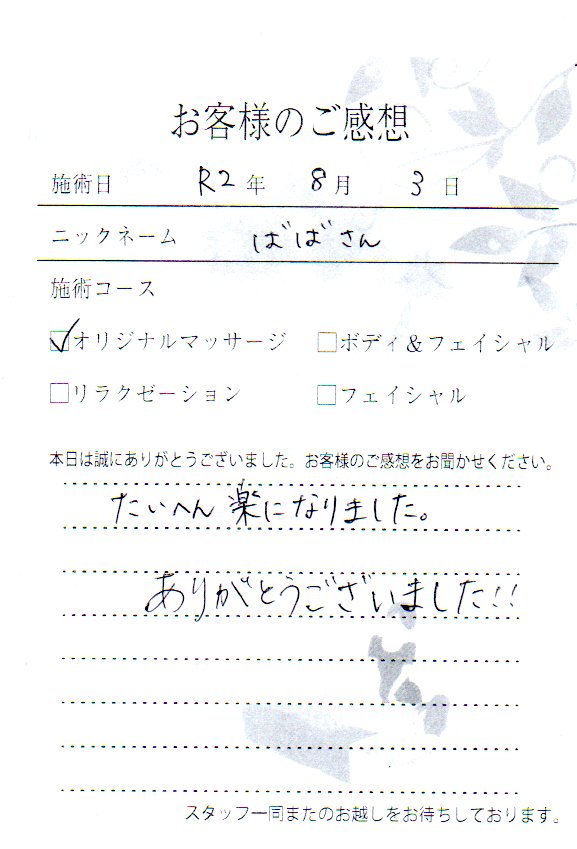 お客様のご感想
施術日 R2年 8月 3日
ニックネーム ばばさん
施術コース
☑オリジナルマッサージ □ボディ&フェイシャル
□リラクゼーション □フェイシャル
本日は誠にありがとうございました。お客様のご感想をお聞かせください。
たいへん楽になりました。
ありがとうございました!!
スタッフ一同またのお越しをお待ちしております。